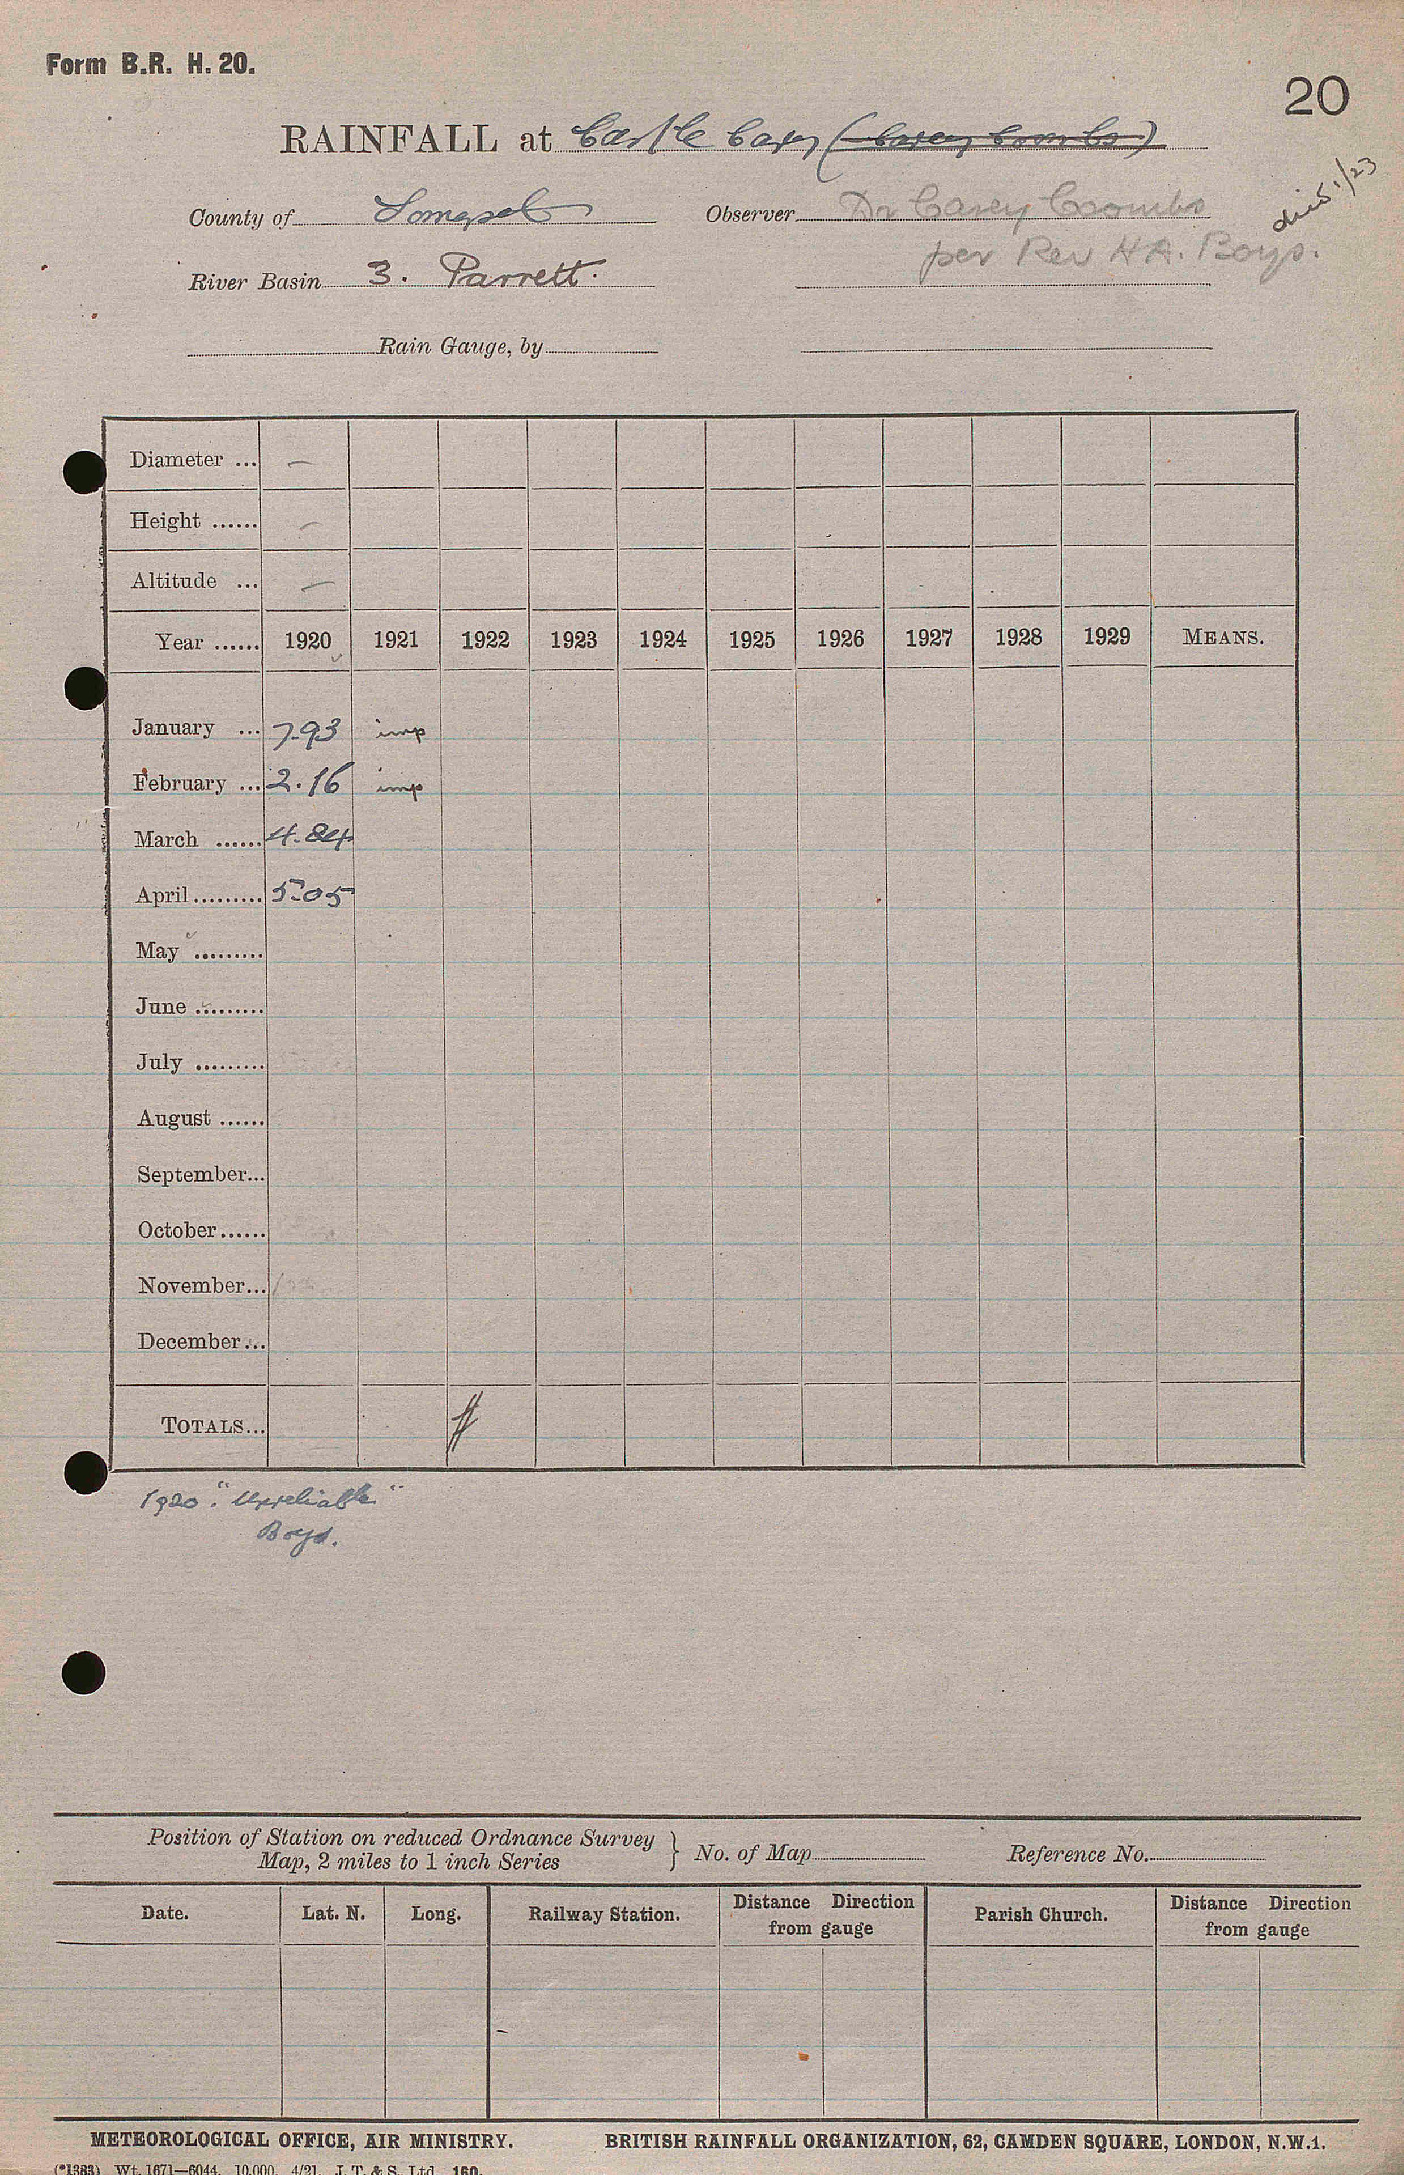 Form B.R. H. 20.
20
RAINFALL at Castle Cary (Carey Coombs)
County of Somerset Observer Dr Carey Coombs
1/23
per Rev H A. Boys.
River Basin 3. Parrett.
Rain Gauge, by
Diameter ... —
Height ...... —
Altitude ... —
Year ...... 1920 1921 1922 1923 1924 1925 1926 1927 1928 1929 MEANS.
January ... 7.93 imp
February ... 2.16 imp
March ...... 4.84
April ......... 5.05
May .........
June .........
July .........
August ......
September...
October ......
November...
December ...
TOTALS...
1920 "Unreliable"
Boys.
Position of Station on reduced Ordnance Survey
Map, 2 miles to 1 inch Series } No. of Map Reference No.
Date. Lat. N. Long. Railway Station. Distance Direction from gauge Parish Church. Distance Direction from gauge
METEOROLOGICAL OFFICE, AIR MINISTRY. BRITISH RAINFALL ORGANIZATION, 62, CAMDEN SQUARE, LONDON, N.W.1.
(*1383) Wt. 1671—6044. 10,000. 4/21. J. T. & S. Ltd. 160.